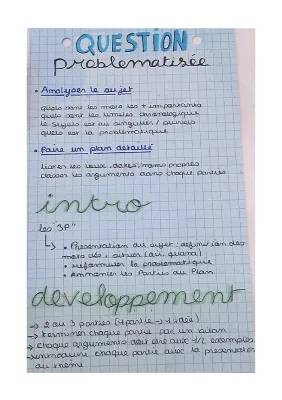 QUESTION
problematisée
• Analyser le sujet
quels sont les mots les + importants
quels sont les limites chronologique
le sujet est au singulier / pluriel
quels est la problématique
• Faire un plan detaillé
lister les lieux, dates, noms propres
classer les arguments dans chaque parties
intro
les "3P"
• Présentation du sujet : definition des
mots clés, situer (où, quand)
• reformuler la problematique
• Ammener les Parties du Plan
developpement
→ 2 ou 3 parties (1 partie → 1 idée)
→ terminer chaque partie par un bilan
→ chaque arguments doit être avec 1/2 exemples
→ introduire chaque partie avec la presentation
du thème